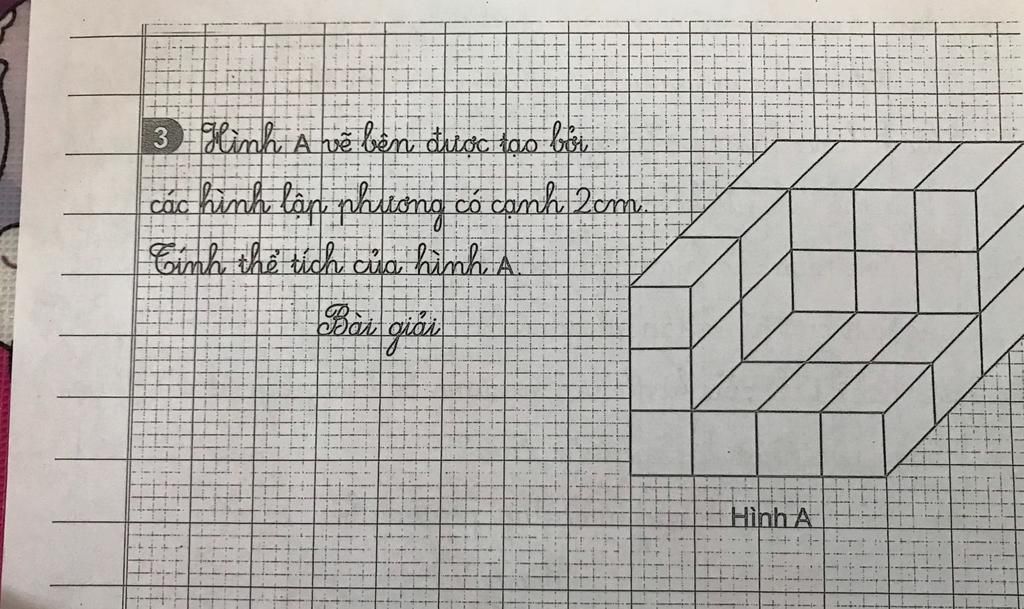 3 Hình A vẽ bên được tạo bởi
các hình lập phương có cạnh 2cm.
Tính thể tích của hình A.
Bài giải
Hình A